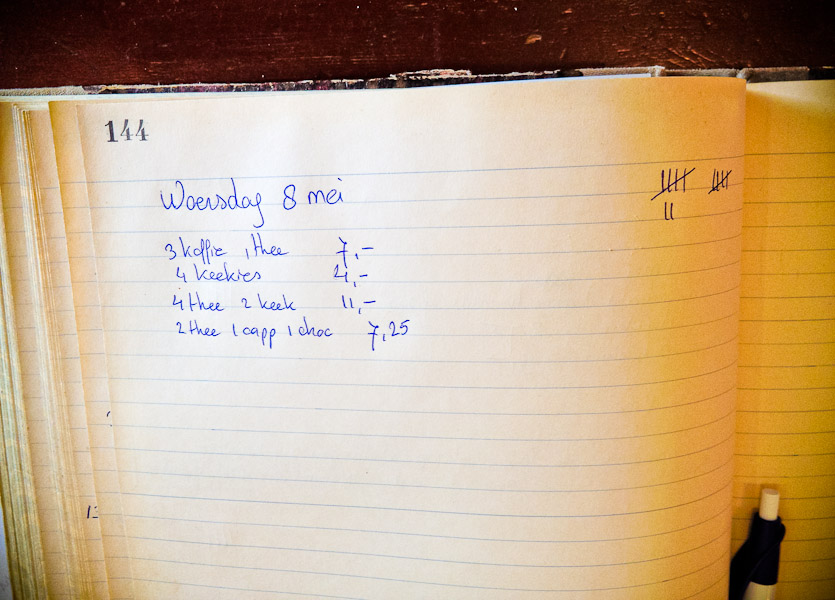 144
Woensdag 8 mei
3 koffie 1 thee 7,-
4 keekjes 4,-
4 thee 2 keek 11,-
2 thee 1 capp 1 choc 7,25